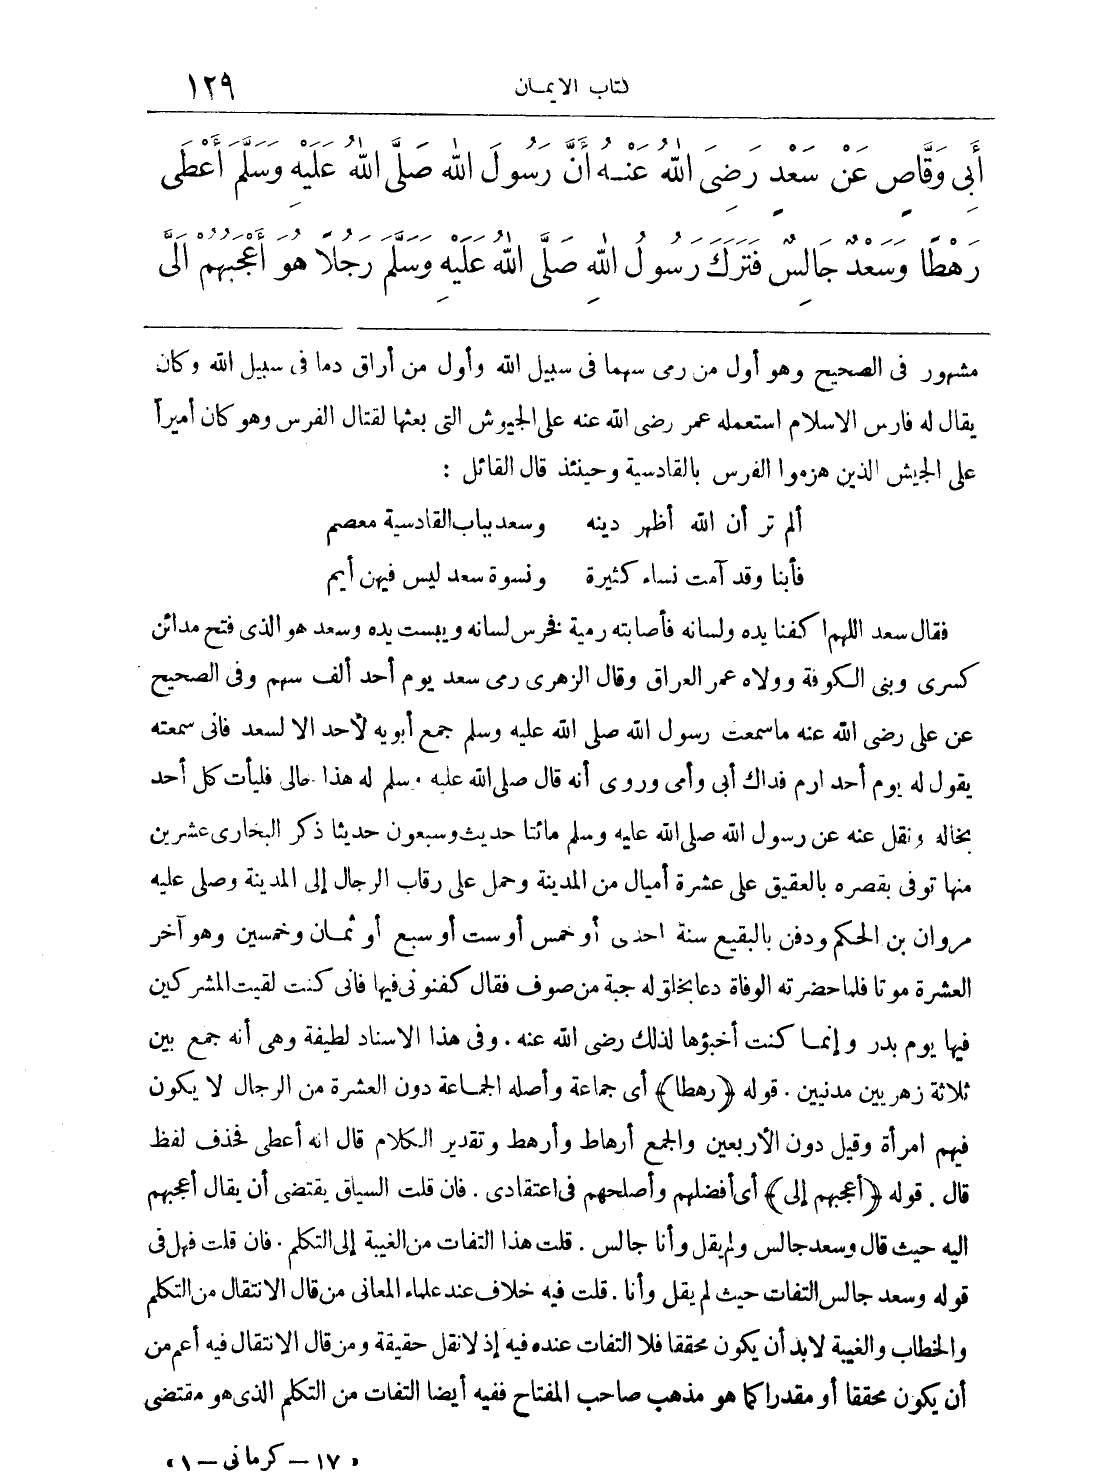 كتاب الايمان ١٢٩
أَبِى وَقَّاصٍ عَنْ سَعْدٍ رَضِىَ اللهُ عَنْهُ أَنَّ رَسُولَ اللهِ صَلَّى اللهُ عَلَيْهِ وَسَلَّمَ أَعْطَى
رَهْطًا وَسَعْدٌ جَالِسٌ فَتَرَكَ رَسُولُ اللهِ صَلَّى اللهُ عَلَيْهِ وَسَلَّمَ رَجُلًا هُوَ أَعْجَبُهُمْ الَىَّ
مشهور فى الصحيح وهو أول من رمى سهما فى سبيل الله وأول من أراق دما فى سبيل الله وكان
يقال له فارس الاسلام استعمله عمر رضى الله عنه على الجيوش التى بعثها لقتال الفرس وهو كان أميراً
على الجيش الذين هزموا الفرس بالقادسية وحينئذ قال القائل :
ألم تر أن الله أظهر دينه وسعد بباب القادسية معصم
فأبنا وقد آمت نساء كثيرة ونسوة سعد ليس فيهن أيم
فقال سعد اللهم اكفنا يده ولسانه فأصابته رمية فخرس لسانه ويبست يده وسعد هو الذى فتح مدائن
كسرى وبنى الكوفة وولاه عمر العراق وقال الزهرى رمى سعد يوم أحد ألف سهم وفى الصحيح
عن على رضى الله عنه ماسمعت رسول الله صلى الله عليه وسلم جمع أبويه لأحد الا لسعد فانى سمعته
يقول له يوم أحد ارم فداك أبى وأمى وروى أنه قال صلى الله عليه وسلم له هذا خالى فليأت كل أحد
بخاله ونقل عنه عن رسول الله صلى الله عليه وسلم مائتا حديث وسبعون حديثا ذكر البخارى عشرين
منها توفى بقصره بالعقيق على عشرة أميال من المدينة وحمل على رقاب الرجال إلى المدينة وصلى عليه
مروان بن الحكم ودفن بالبقيع سنة احدى أو خمس أو ست أو سبع أو ثمان وخمسين وهو آخر
العشرة موتا فلما حضرته الوفاة دعا بخلق له جبة من صوف فقال كفنونى فيها فانى كنت لقيت المشركين
فيها يوم بدر وإنما كنت أخبؤها لذلك رضى الله عنه . وفى هذا الاسناد لطيفة وهى أنه جمع بين
ثلاثة زهريين مدنيين . قوله ﴿رهطا﴾ أى جماعة وأصله الجماعة دون العشرة من الرجال لا يكون
فيهم امرأة وقيل دون الأربعين والجمع أرهاط وأرهط وتقدير الكلام قال انه أعطى فحذف لفظ
قال . قوله ﴿أعجبهم إلى﴾ أى أفضلهم وأصلحهم فى اعتقادى . فان قلت السياق يقتضى أن يقال أعجبهم
اليه حيث قال وسعد جالس ولم يقل وأنا جالس . قلت هذا التفات من الغيبة إلى التكلم . فان قلت فهل فى
قوله وسعد جالس التفات حيث لم يقل وأنا . قلت فيه خلاف عند علماء المعانى من قال الانتقال من التكلم
والخطاب والغيبة لابد أن يكون محققا فلا التفات عنده فيه إذ لا نقل حقيقة ومن قال الانتقال فيه أعم من
أن يكون محققا أو مقدرا كما هو مذهب صاحب المفتاح ففيه أيضا التفات من التكلم الذى هو مقتضى
« ١٧ - كرمانى - ١ »